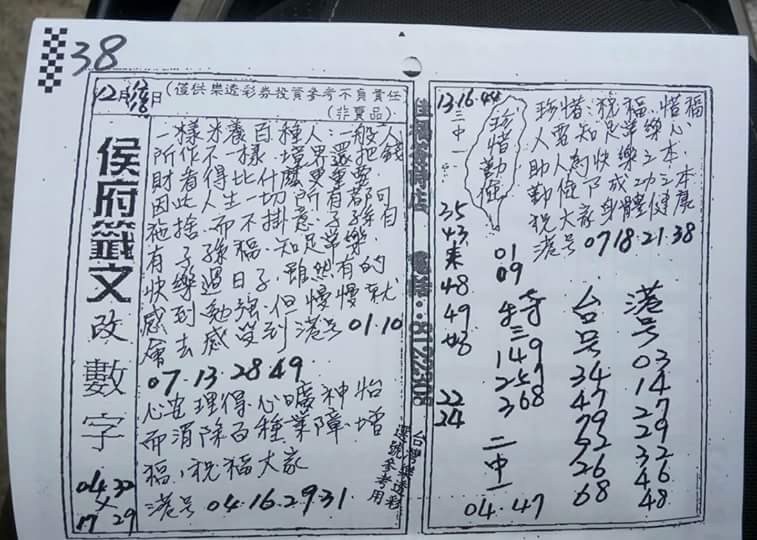 38
12月
(僅供樂透彩券投資參考不負責任
(非賣品)
侯府籤文
改數字
04 32
17 29
一樣米養百種人:一般人
所作不一樣.境界還把錢
財看得比什麼更重要
因此人生一切所有都可
施捨.而不掛意.子孫自
有子孫福.知足常樂.
快樂過日子.雖然有的
感到勉強.但慢慢就
會去感受到 港号 01.10
07.13.28.49
心安理得心曠神怡
而消除百種業障.增
福、祝福大家
港号 04.16.29.31
台灣樂透彩
選號參考用
13.16.44
三中一
珍惜勤儉
珍惜.祝福.惜福
人要知足常樂心
助人為快樂之本
勤儉乃成功之本
祝大家身體健康
港号 07.18.21.38
35
43
來
48
49
好
22
24
01
09
特
三
149
257
368
二中一
04.47
台号
34
47
79
52
26
68
港号
03
14
27
29
32
46
48